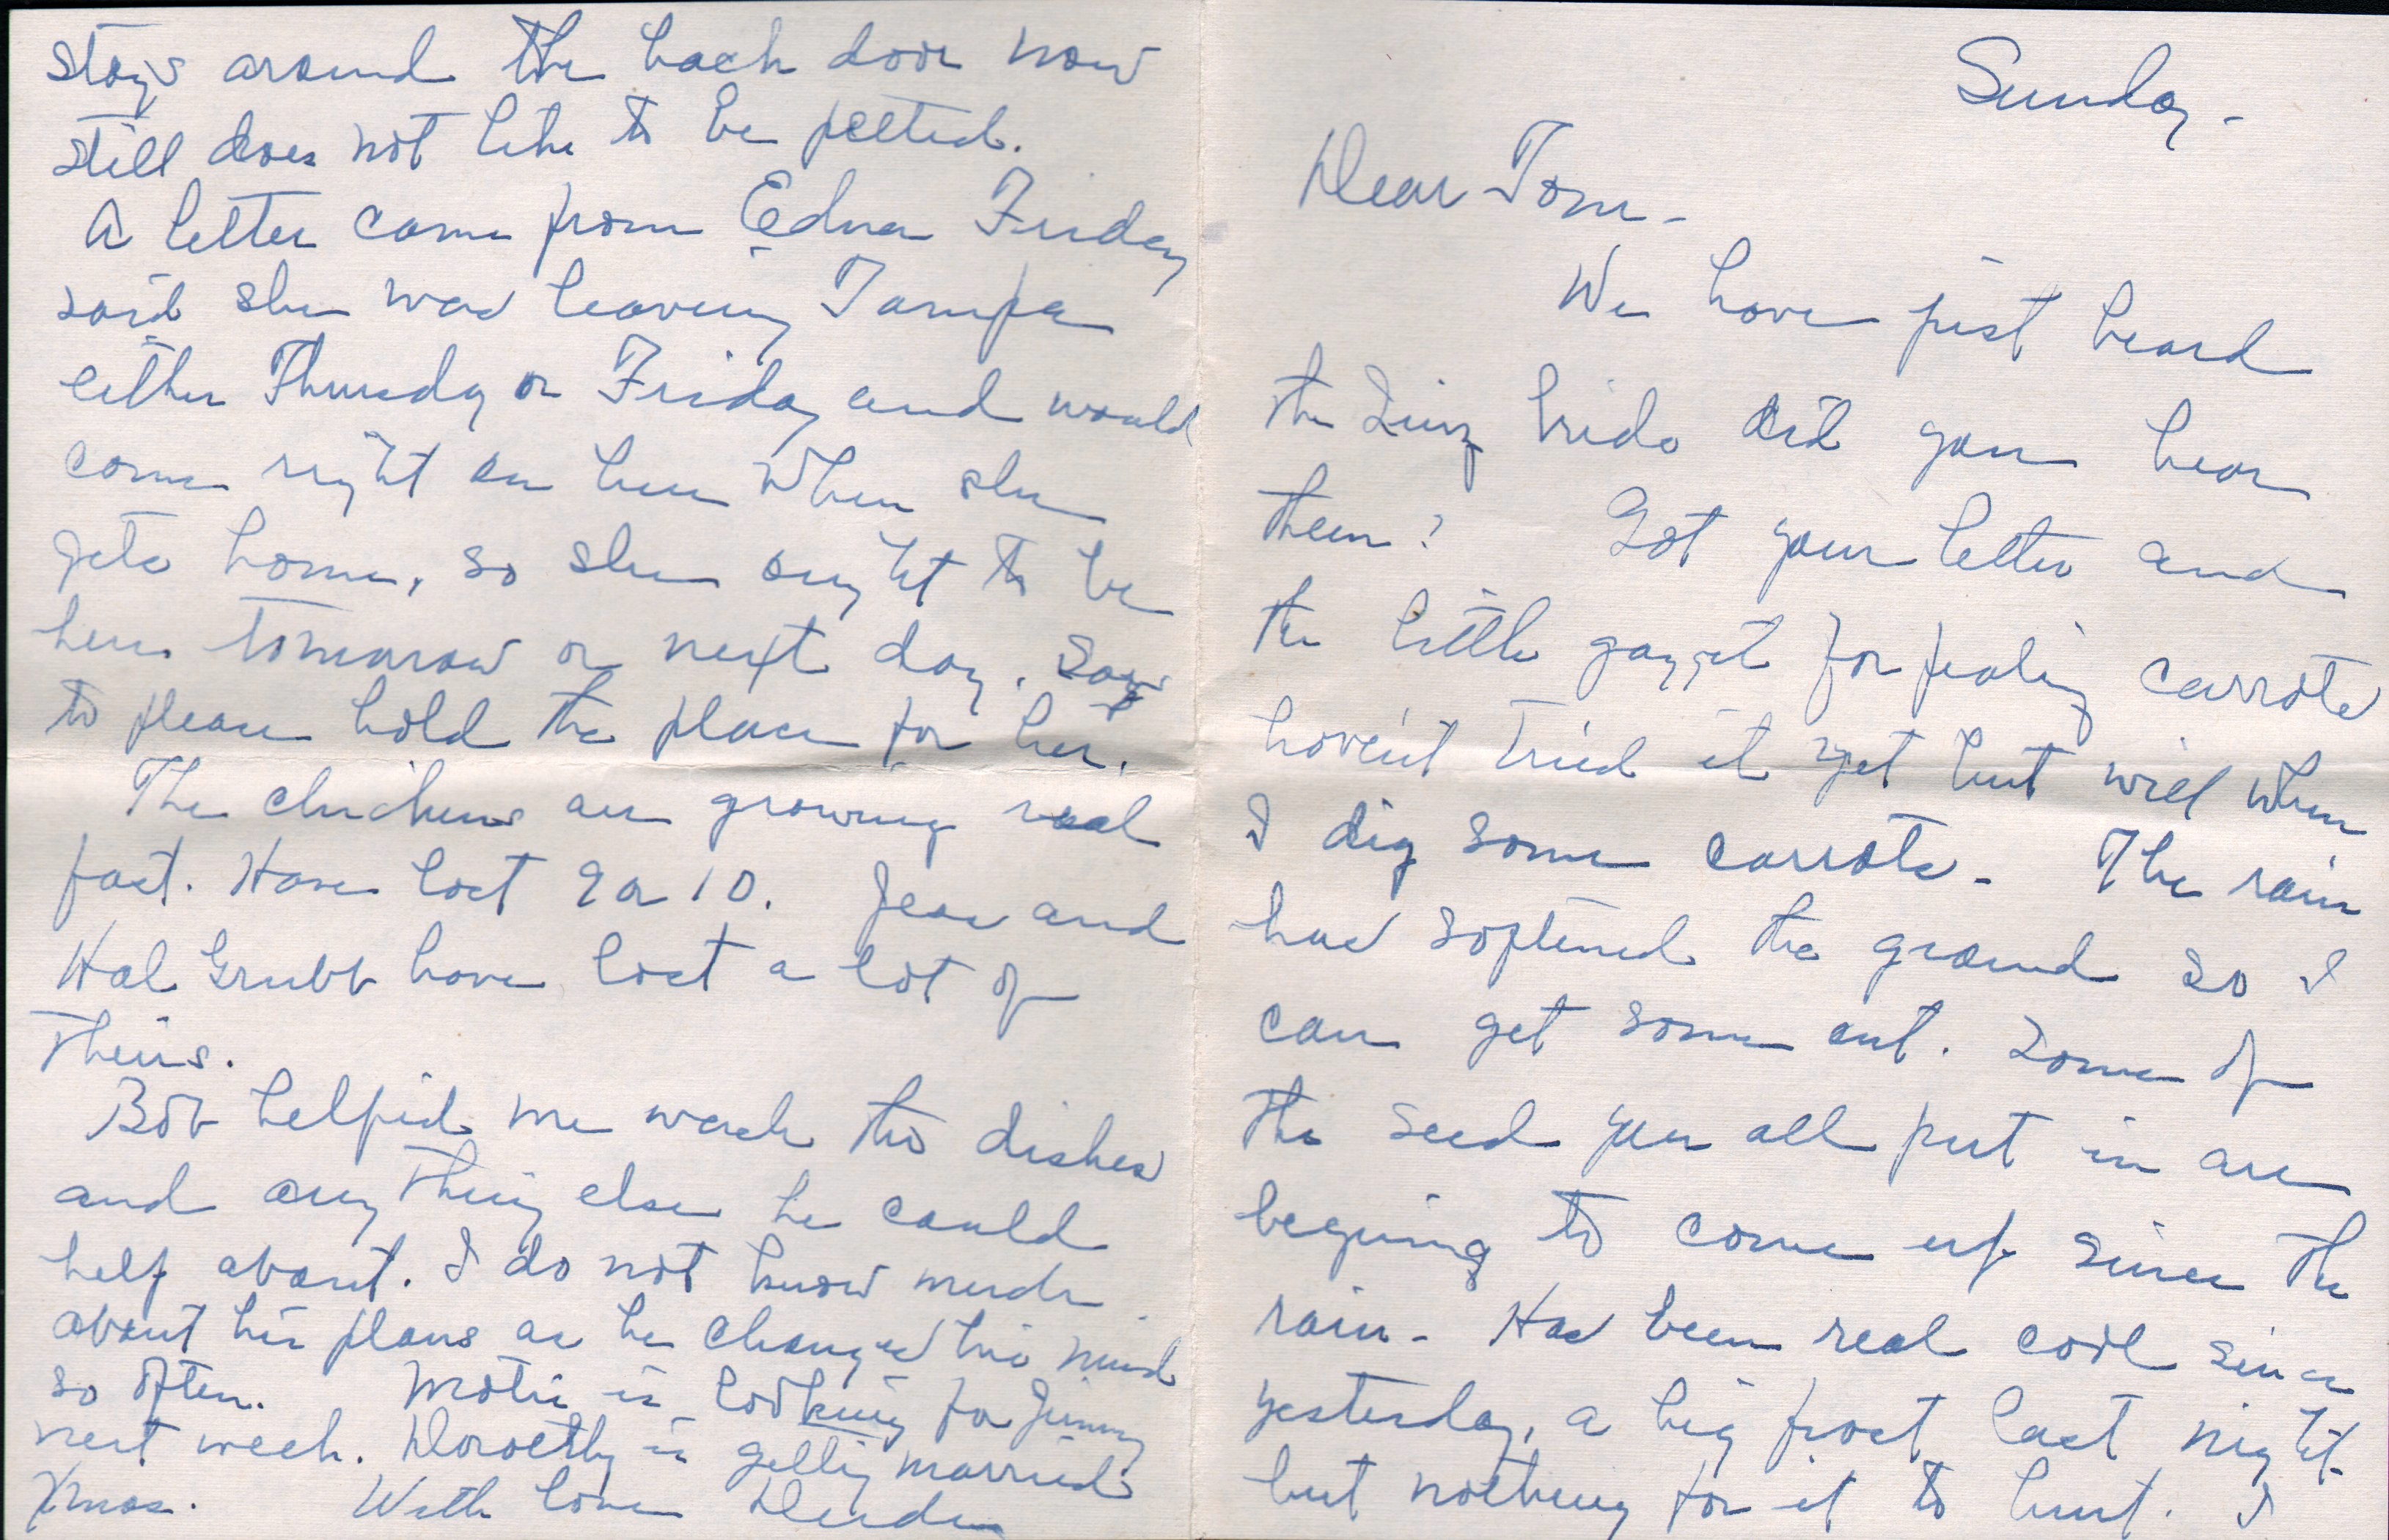 stays around the back door now
still does not like to be petted.
A letter came from Edna Friday
said she was leaving Tampa
either Thursday or Friday and would
come right on here when she
gets home, so she ought to be
here tomorrow or next day. Says
to please hold the place for her.
The chickens are growing real
fast. Have lost 9 or 10. Jean and
Hal Grubb have lost a lot of
theirs.
Bob helped me wash the dishes
and any thing else he could
help about. I do not know much
about his plans as he changes his mind
so often. is looking for Jimmy
next week. Dorothy is getting married
Xmas. With love
Sunday -
Dear Tom -
We have just heard
the Quiz kids did you hear
them? Got your letter and
the little gagget for pealing carrots
haven't tried it yet but will when
I dig some carrots - The rain
has softened the ground so I
can get some out. Some of
the seed you all put in are
begining to come up since the
rain - Has been real cool since
yesterday, a big frost last night
but nothing for it to hurt. I